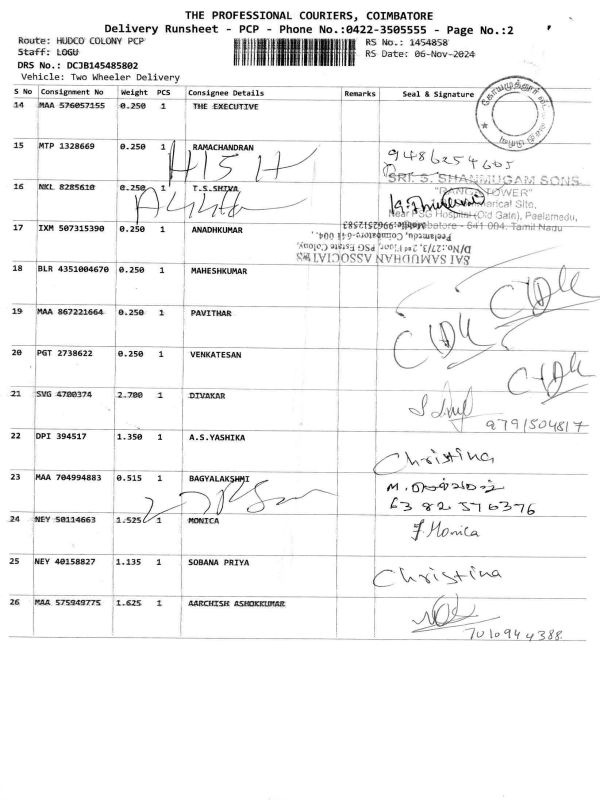 THE PROFESSIONAL COURIERS, COIMBATORE
Delivery Runsheet - PCP - Phone No.:0422-3505555 - Page No.:2
Route: HUDCO COLONY PCP RS No.: 1454858
Staff: LOGU RS Date: 06-Nov-2024
DRS No.: DCJB145485802
Vehicle: Two Wheeler Delivery
S No Consignment No Weight PCS Consignee Details Remarks Seal & Signature
14 MAA 576057155 0.250 1 THE EXECUTIVE
15 MTP 1328669 0.250 1 RAMACHANDRAN
9486254605
16 NKL 8285610 0.250 1 T.S.SHIVA
SRI S. SHANMUGAM SONS
"RANGA TOWER"
Near PSG Hospital (Old Gate), Peelamedu,
Coimbatore - 641 004. Tamil Nadu
17 IXM 507315390 0.250 1 ANADHKUMAR
SAI SAMUDHAN ASSOCIATES
D/No:27/3, 2nd Floor, PSG Estate Colony,
Peelamedu, Coimbatore-641 004.
18 BLR 4351004670 0.250 1 MAHESHKUMAR
19 MAA 867221664 0.250 1 PAVITHAR
20 PGT 2738622 0.250 1 VENKATESAN
21 SVG 4700374 2.700 1 DIVAKAR
9791504817
22 DPI 394517 1.350 1 A.S.YASHIKA
Christina
23 MAA 704994883 0.515 1 BAGYALAKSHMI
6382576376
24 NEY 50114663 1.525 1 MONICA
J. Monica
25 NEY 40158827 1.135 1 SOBANA PRIYA
Christina
26 MAA 575949775 1.625 1 AARCHISH ASHOKKUMAR
7010944388